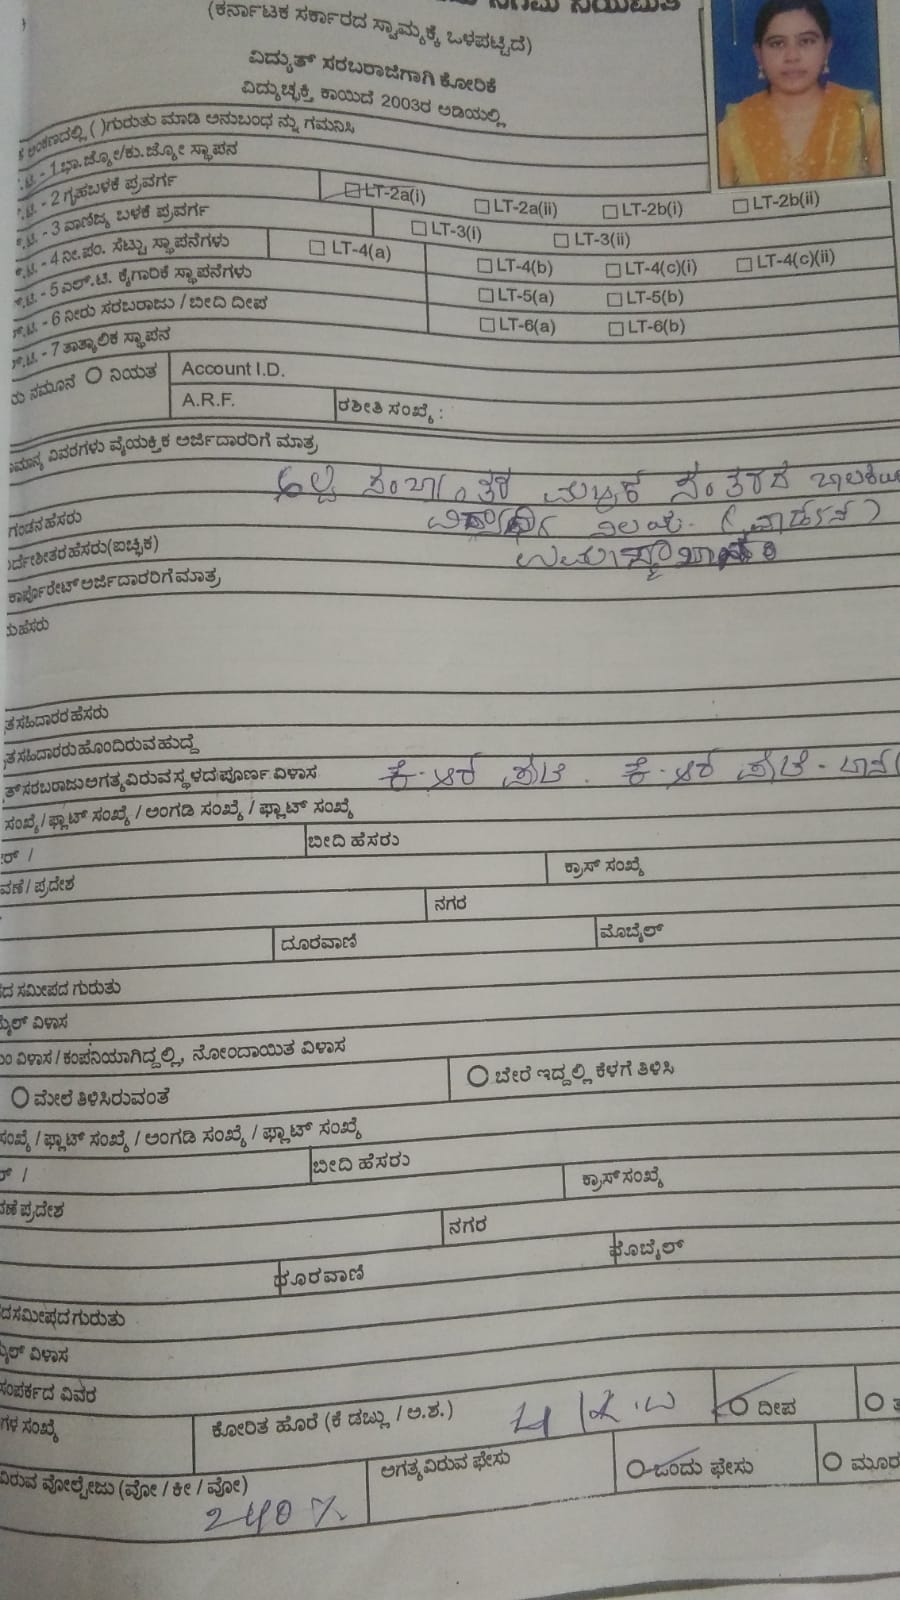 ನಿಗಮ ನಿಯಮಿತ
(ಕರ್ನಾಟಕ ಸರ್ಕಾರದ ಸ್ವಾಮ್ಯಕ್ಕೆ ಒಳಪಟ್ಟಿದೆ)
ವಿದ್ಯುತ್ ಸರಬರಾಜಿಗಾಗಿ ಕೋರಿಕೆ
ವಿದ್ಯುಚ್ಛಕ್ತಿ ಕಾಯಿದೆ 2003ರ ಅಡಿಯಲ್ಲಿ
ಅಂಕಣದಲ್ಲಿ ( )ಗುರುತು ಮಾಡಿ ಅನುಬಂಧ ನ್ನು ಗಮನಿಸಿ
.ಟಿ. - 1 ಭಾ.ಜ್ಯೋ/ಕು.ಜ್ಯೋ ಸ್ಥಾಪನ
.ಟಿ. - 2 ಗೃಹಬಳಕೆ ಪ್ರವರ್ಗ LT-2a(i) LT-2a(ii) LT-2b(i) LT-2b(ii)
.ಟಿ. - 3 ವಾಣಿಜ್ಯ ಬಳಕೆ ಪ್ರವರ್ಗ LT-3(i) LT-3(ii)
.ಟಿ. - 4 ನೀ.ಪಂ. ಸೆಟ್ಟು ಸ್ಥಾಪನೆಗಳು LT-4(a) LT-4(b) LT-4(c)(i) LT-4(c)(ii)
.ಟಿ. - 5 ಎಲ್.ಟಿ. ಕೈಗಾರಿಕೆ ಸ್ಥಾಪನೆಗಳು LT-5(a) LT-5(b)
.ಟಿ. - 6 ನೀರು ಸರಬರಾಜು / ಬೀದಿ ದೀಪ LT-6(a) LT-6(b)
.ಟಿ. - 7 ತಾತ್ಕಾಲಿಕ ಸ್ಥಾಪನ
ರು ನಮೂನೆ ನಿಯತ Account I.D.
A.R.F. ರಶೀತಿ ಸಂಖ್ಯೆ :
ಾಮಾನ್ಯ ವಿವರಗಳು ವೈಯಕ್ತಿಕ ಅರ್ಜಿದಾರರಿಗೆ ಮಾತ್ರ
ಗಂಡನ ಹೆಸರು
ರ್ದೇಶೀತರ ಹೆಸರು(ಐಚ್ಛಿಕ)
ಕಾರ್ಪೊರೇಟ್ ಅರ್ಜಿದಾರರಿಗೆ ಮಾತ್ರ
ಯ ಹೆಸರು
ತ ಸಹಿದಾರರ ಹೆಸರು
ತ ಸಹಿದಾರರು ಹೊಂದಿರುವ ಹುದ್ದೆ
ತ್ ಸರಬರಾಜು ಅಗತ್ಯವಿರುವ ಸ್ಥಳದ ಪೂರ್ಣ ವಿಳಾಸ ಕೆ.ಆರ್ ಪೇಟೆ. ಕೆ.ಆರ್ ಪೇಟೆ -
ಸಂಖ್ಯೆ/ ಫ್ಲಾಟ್ ಸಂಖ್ಯೆ / ಅಂಗಡಿ ಸಂಖ್ಯೆ / ಫ್ಲಾಟ್ ಸಂಖ್ಯೆ
ರ್ / ಬೀದಿ ಹೆಸರು
ವಣೆ / ಪ್ರದೇಶ ಕ್ರಾಸ್ ಸಂಖ್ಯೆ
ನಗರ
ದೂರವಾಣಿ ಮೊಬೈಲ್
ದ ಸಮೀಪದ ಗುರುತು
ಮೈಲ್ ವಿಳಾಸ
ಂ ವಿಳಾಸ / ಕಂಪನಿಯಾಗಿದ್ದಲ್ಲಿ, ನೋಂದಾಯಿತ ವಿಳಾಸ
ಮೇಲೆ ತಿಳಿಸಿರುವಂತೆ ಬೇರೆ ಇದ್ದಲ್ಲಿ ಕೆಳಗೆ ತಿಳಿಸಿ
ಸಂಖ್ಯೆ / ಫ್ಲಾಟ್ ಸಂಖ್ಯೆ / ಅಂಗಡಿ ಸಂಖ್ಯೆ / ಫ್ಲಾಟ್ ಸಂಖ್ಯೆ
ರ್ / ಬೀದಿ ಹೆಸರು
ವಣೆ ಪ್ರದೇಶ ಕ್ರಾಸ್ ಸಂಖ್ಯೆ
ನಗರ
ದೂರವಾಣಿ ಮೊಬೈಲ್
ದ ಸಮೀಪದ ಗುರುತು
ಮೈಲ್ ವಿಳಾಸ
ಸಂಪರ್ಕದ ವಿವರ
ಗಳ ಸಂಖ್ಯೆ ಕೋರಿತ ಹೊರೆ (ಕೆ ಡಬ್ಲು / ಅ.ಶ.) ದೀಪ
ವಿರುವ ವೋಲ್ಟೇಜು (ವೋ / ಕೀ / ವೋ) 240 ಅಗತ್ಯವಿರುವ ಫೇಸು ಒಂದು ಫೇಸು ಮೂರ